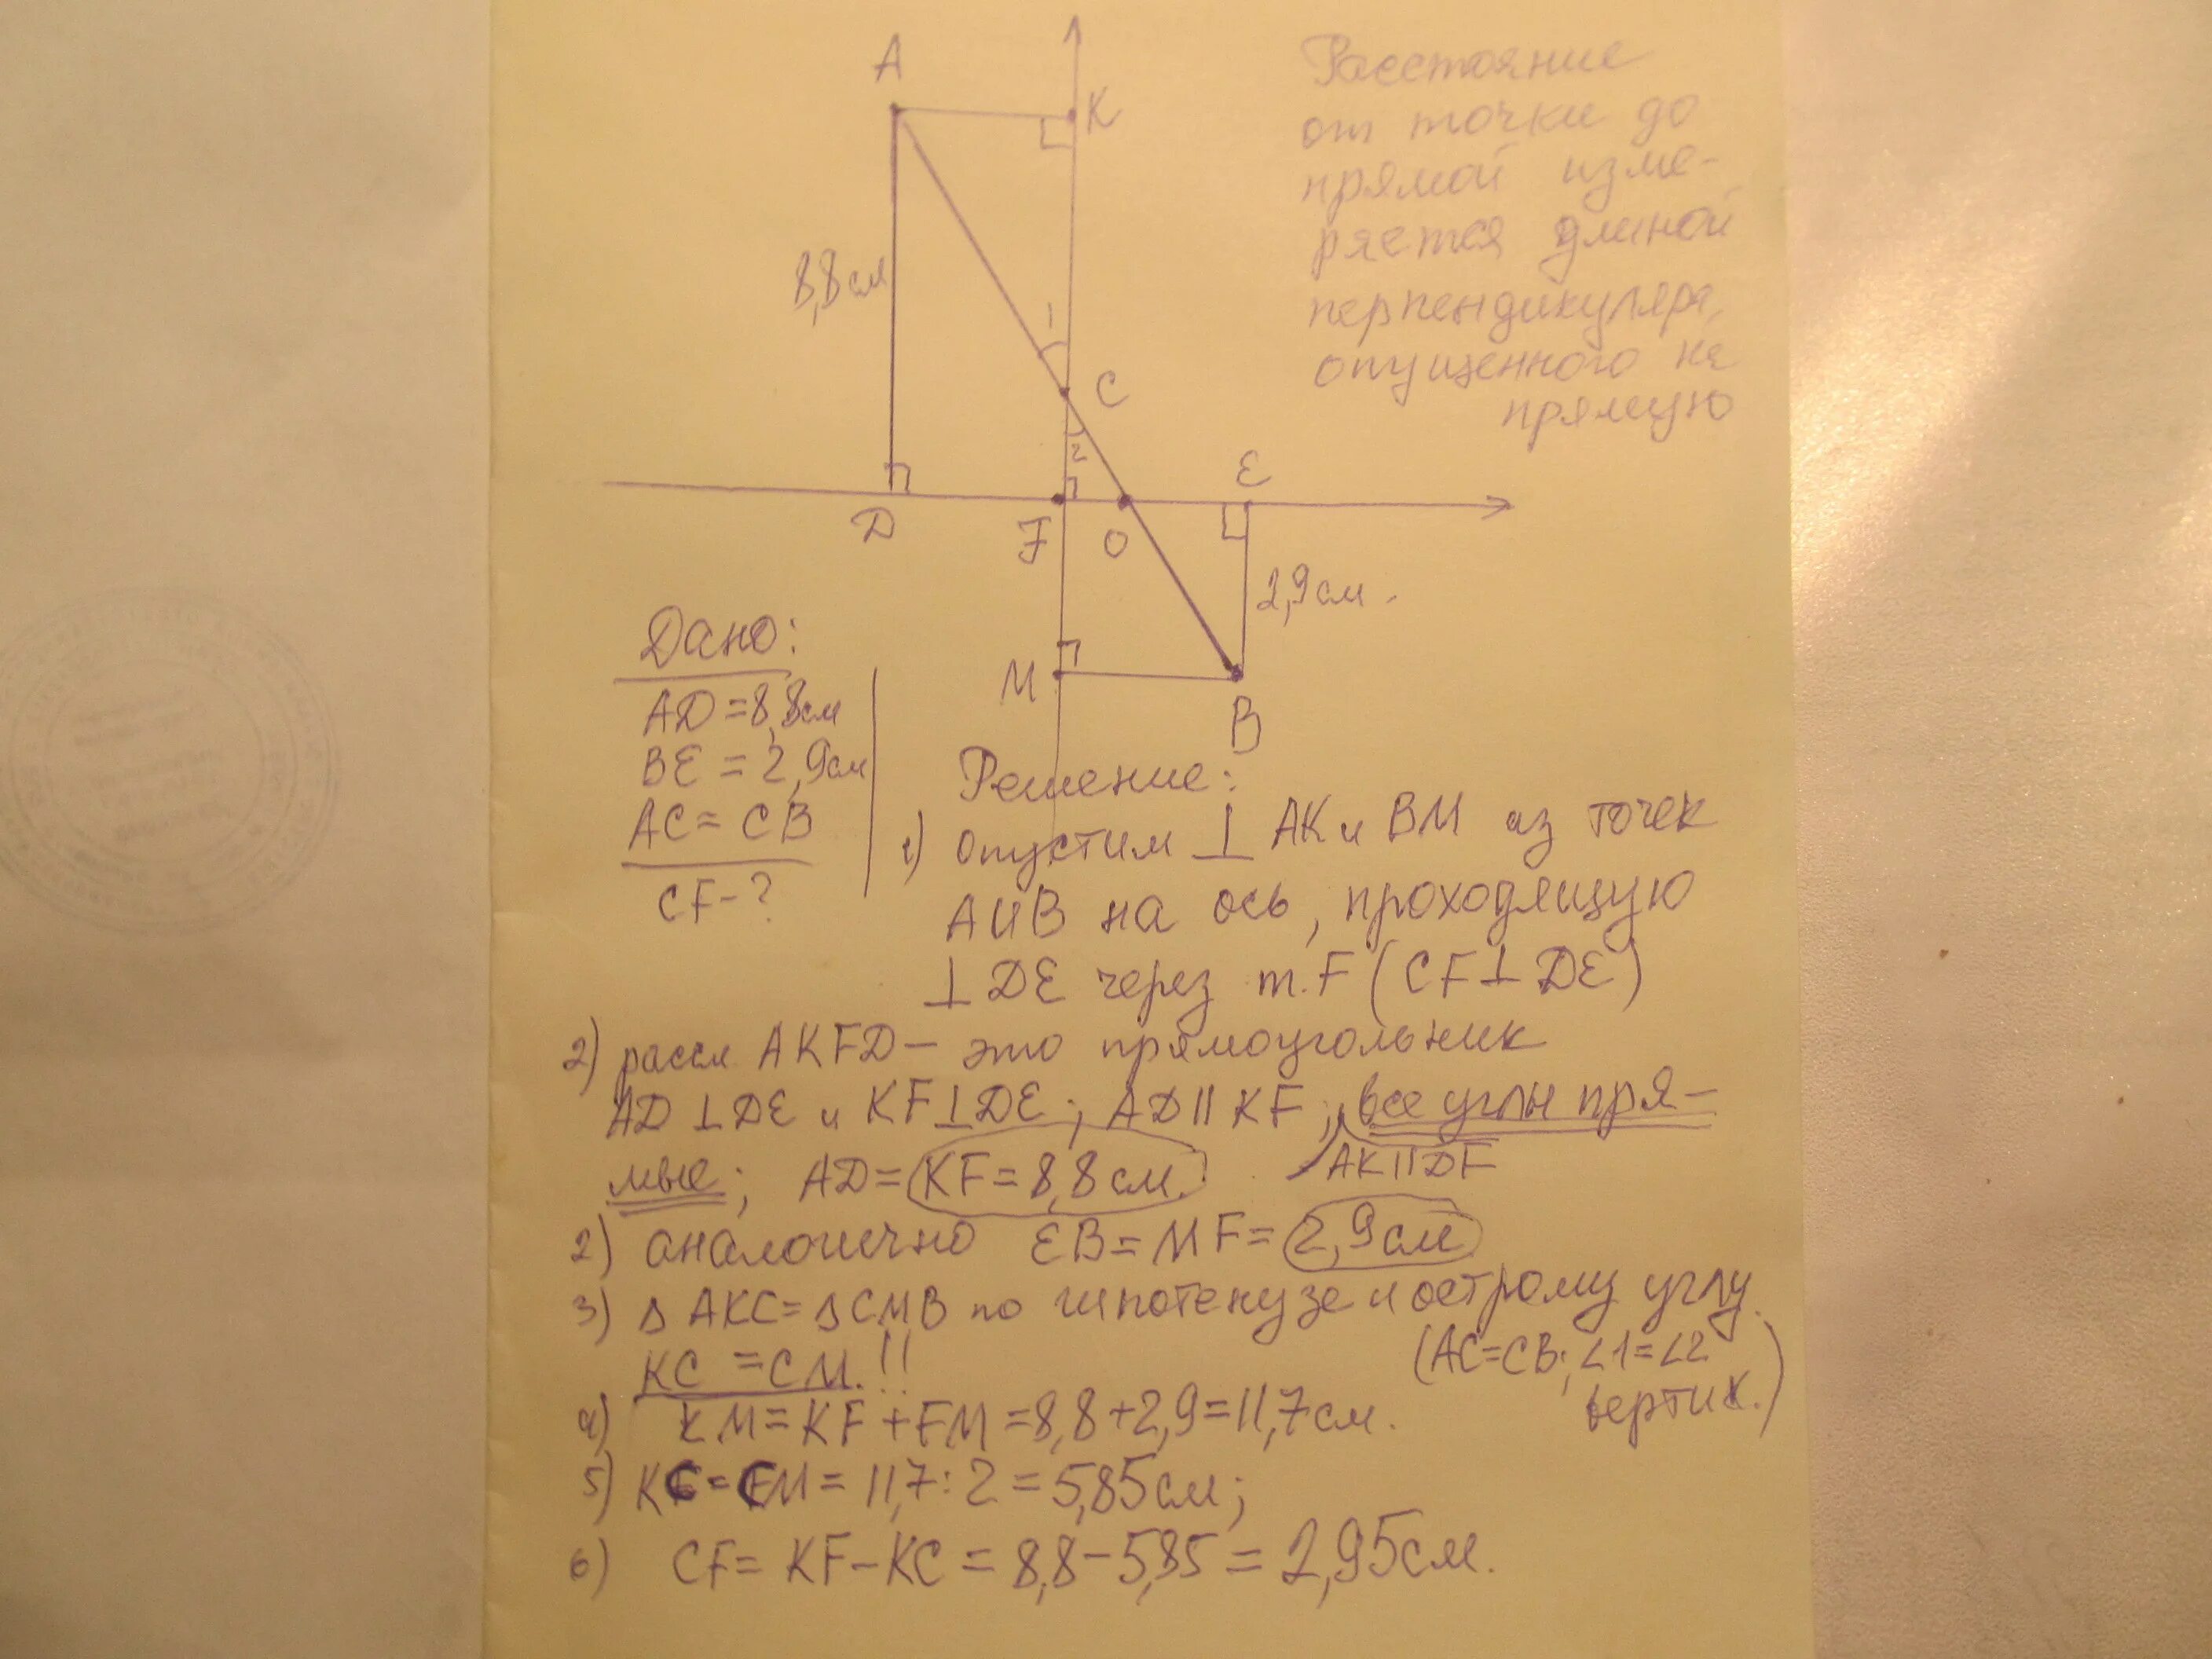 A
K
Расстояние
от точки до
прямой изме-
ряется длиной
перпендикуляра,
опущенного на
прямую
8,8см
1
C
2
E
D
F
O
2,9см.
M
B
Дано:
AD=8,8см
BE=2,9см
AC=CB
CF-?
Решение:
1) опустим ⊥ AK и BM из точек
A и B на ось, проходящую
⊥ DE через т.F (CF⊥DE)
2) рассм AKFD— это прямоугольник
AD⊥DE и KF⊥DE; AD||KF; все углы пря-
AK||DF
мые; AD=KF=8,8см.
2) аналогично EB=MF=2,9см
3) Δ AKC=ΔCMB по гипотенузе и острому углу.
(AC=CB; ∠1=∠2
KC=CM.!!
вертик.)
4) KM=KF+FM=8,8+2,9=11,7см.
5) KC=CM=11,7:2=5,85см;
6) CF=KF-KC=8,8-5,85=2,95см.